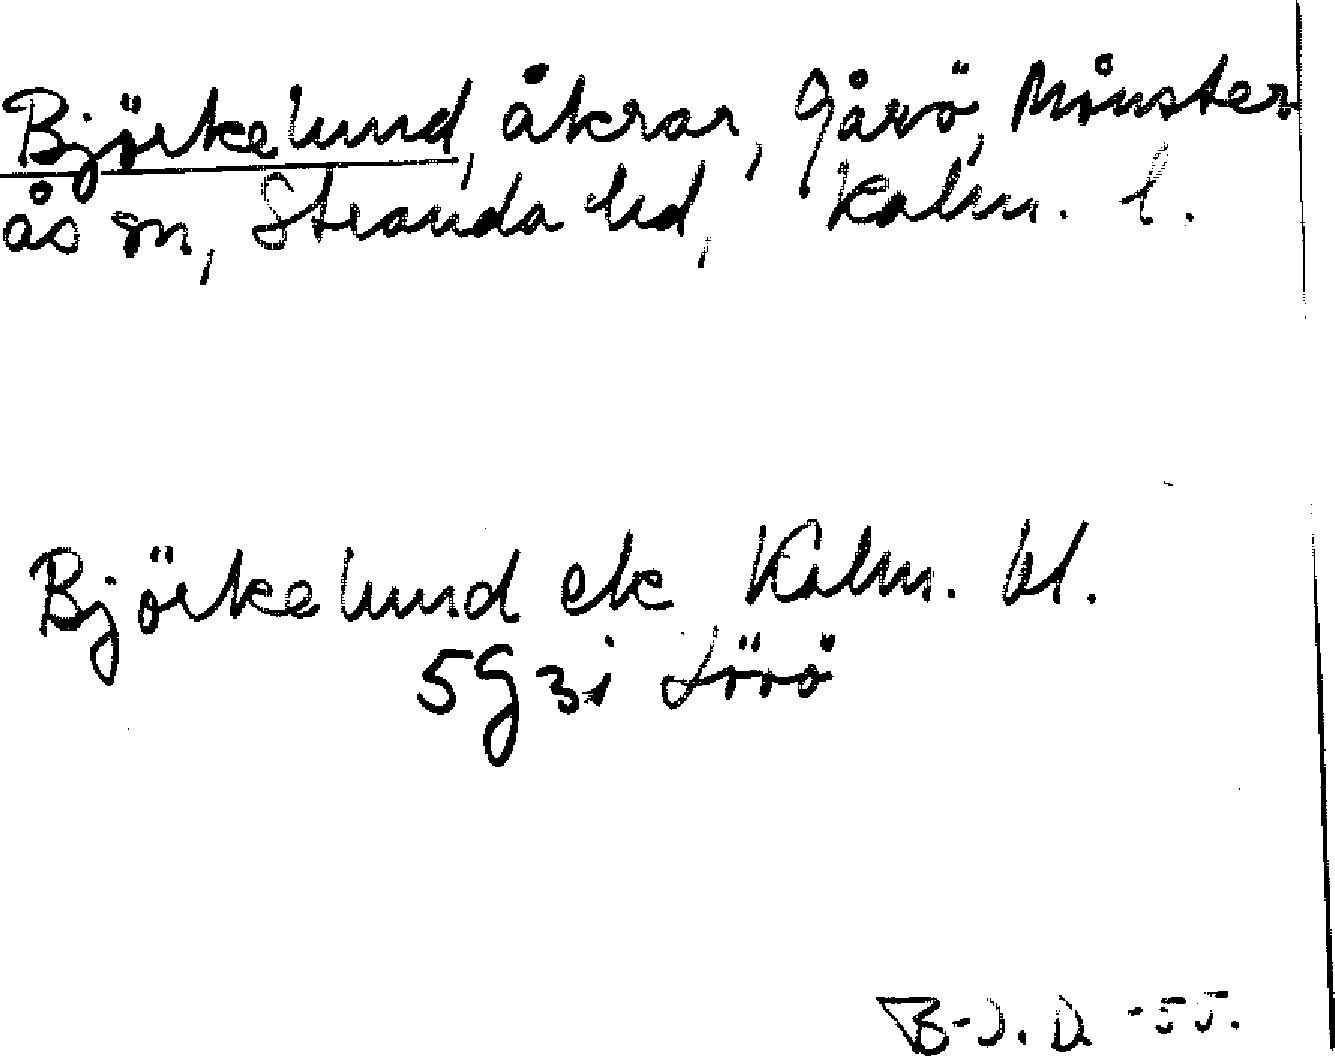 Björkelund, åkrar, Gårö, Mönster
ås sn, Stranda hd, Kalm. l.
Björkelund ek Kalm. bl.
5G3i Lövö
B-J. D. -55.